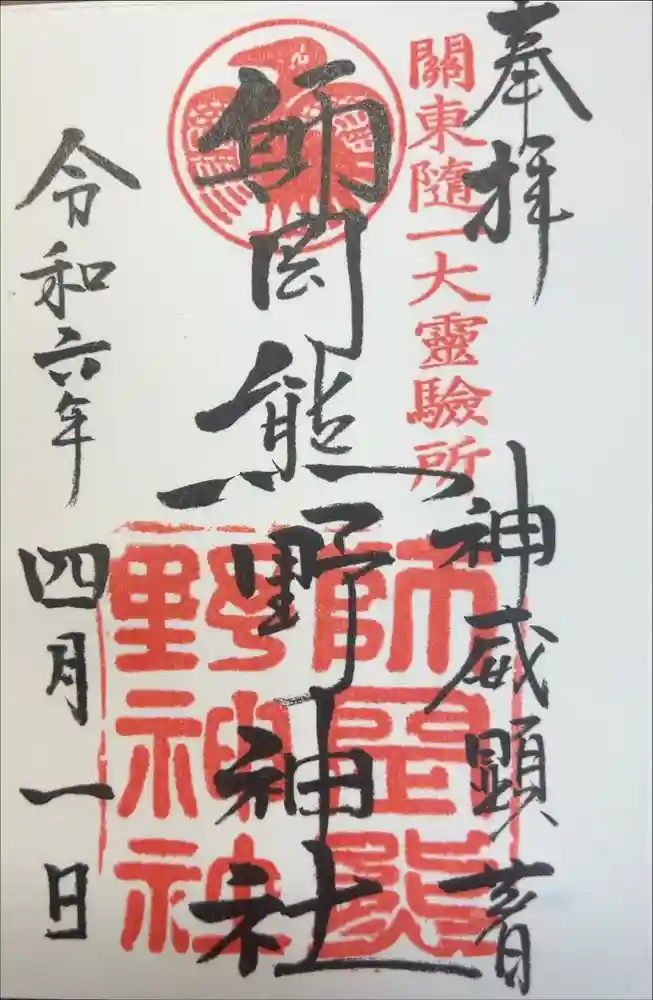 奉拝
神威顕著
關東隨一大靈驗所
師岡熊野神社
師岡熊
野神社
令和六年四月一日